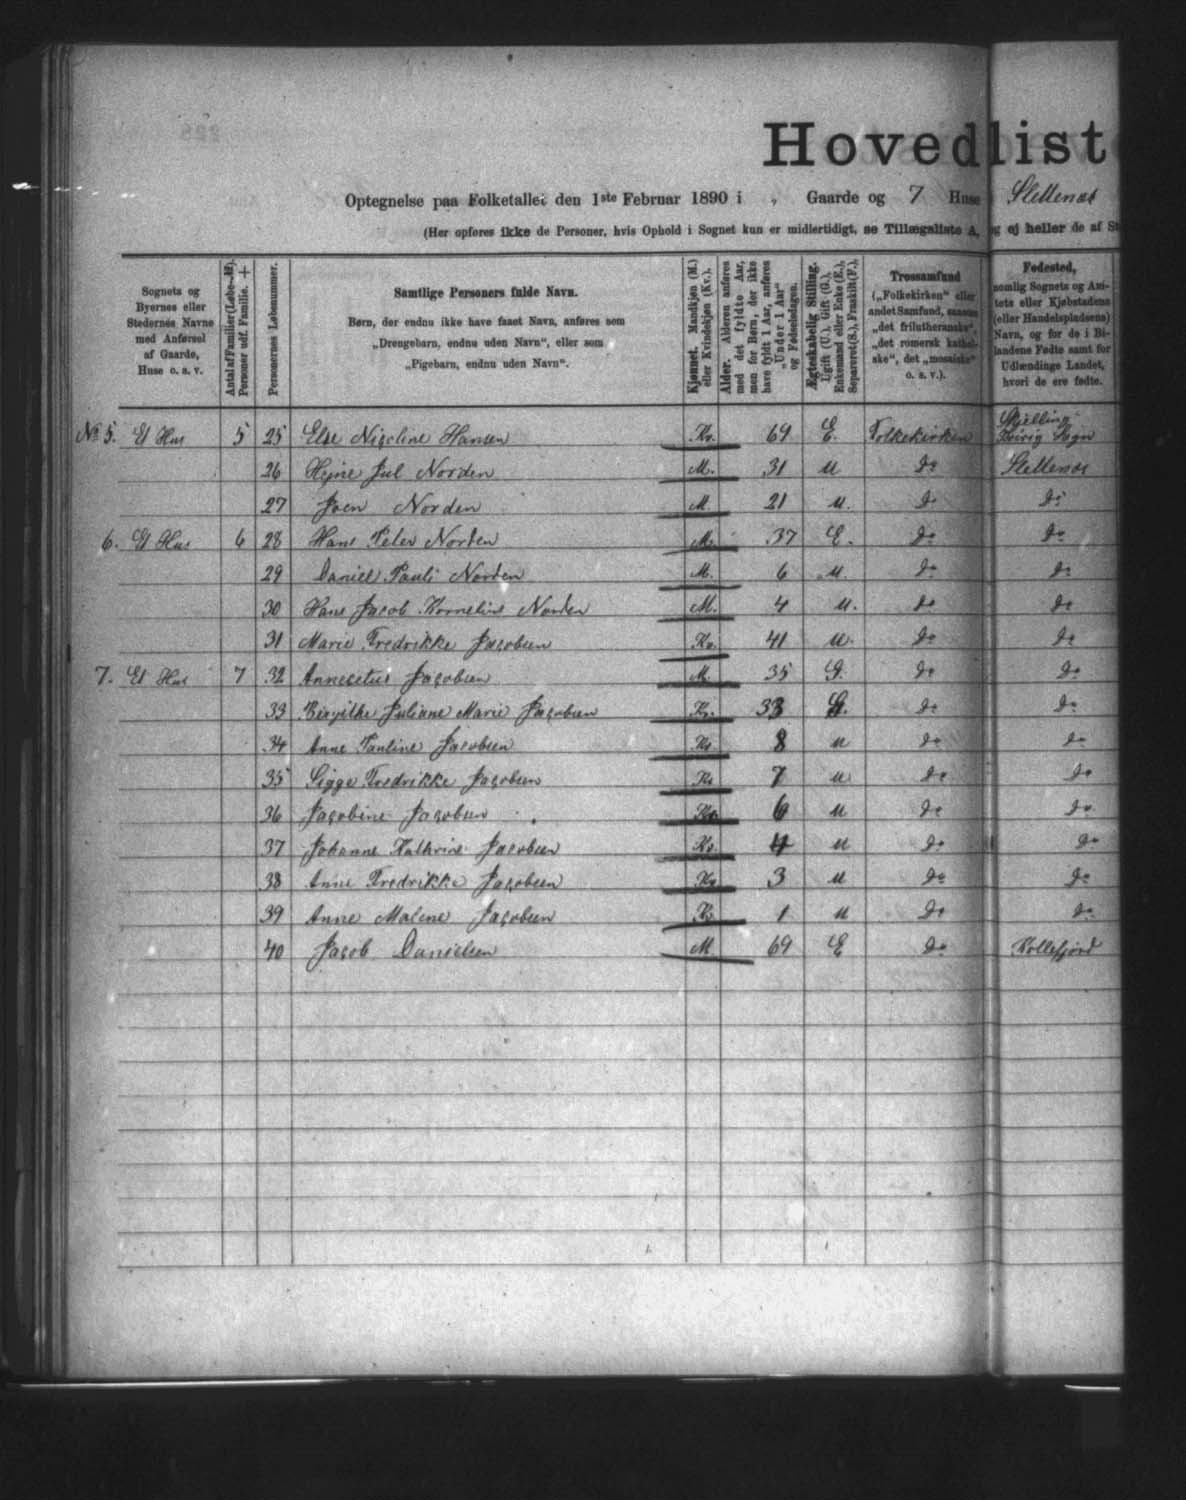 Hovedlist
Optegnelse paa Folketallet den 1ste Februar 1890 i „ Gaarde og 7 Huse i Slettenæs
(Her opføres ikke de Personer, hvis Ophold i Sognet kun er midlertidigt, se Tillægsliste A, og ej heller de af St
Sognets og Byernes eller Stedernes Navne med Anførsel af Gaarde, Huse o. s. v.
Antal af Familier (Løbe-№). Personer udf. Familie. +
Personernes Løbenummer.
Samtlige Personers fulde Navn.
Børn, der endnu ikke have faaet Navn, anføres som „Drengebarn, endnu uden Navn“, eller som „Pigebarn, endnu uden Navn“.
Kjønnet. Mandkjøn (M.) eller Kvindekjøn (Kv.).
Alder. Alderen anføres med det fyldte Aar, men for Børn, der ikke have fyldt 1 Aar, anføres „Under 1 Aar“ og Fødselsdagen.
Ægteskabelig Stilling. Ugift (U.), Gift (G.), Enkemand eller Enke (E.), Separeret (S.), Fraskilt (F.),
Trossamfund („Folkekirken“ eller andet Samfund, saasom „det frilutheranske“, „det romersk katholske“, det „mosaiske“ o. s. v.).
Fødested, nemlig Sognets og Amtets eller Kjøbstadens (eller Handelspladsens) Navn, og for de i Bilandene Fødte samt for Udlændinge Landet, hvori de ere fødte.
№ 5. Et Hus 5 25 Else Nicoline Hansen Kv. 69 E. Folkekirken Sogn
26 Hejne Jul Norden M. 31 U do Slettenæs
27 Joen Norden M. 21 U. do do
6. Et Hus 6 28 Hans Peter Norden M. 37 E. do do
29 Daniel Pauli Norden M. 6 U. do do
30 Hans Jacob Kornelius Norden M. 4 U. do do
31 Marie Fredrikke Jacobsen Kv. 41 U. do do
7. Et Hus 7 32 Jacobsen M. 35 G. do do
33 Birgithe Juliane Marie Jacobsen Kv. 33 G. do do
34 Anne Pauline Jacobsen Kv 8 U do do
35 Sigge Fredrikke Jacobsen Kv 7 U do do
36 Jacobine Jacobsen Kv. 6 U do do
37 Johanne Kathrine Jacobsen Kv. 4 U do do
38 Anne Fredrikke Jacobsen Kv 3 U do do
39 Anne Malene Jacobsen Kv 1 U do do
40 Jacob Danielsen M. 69 E do Kollefjord